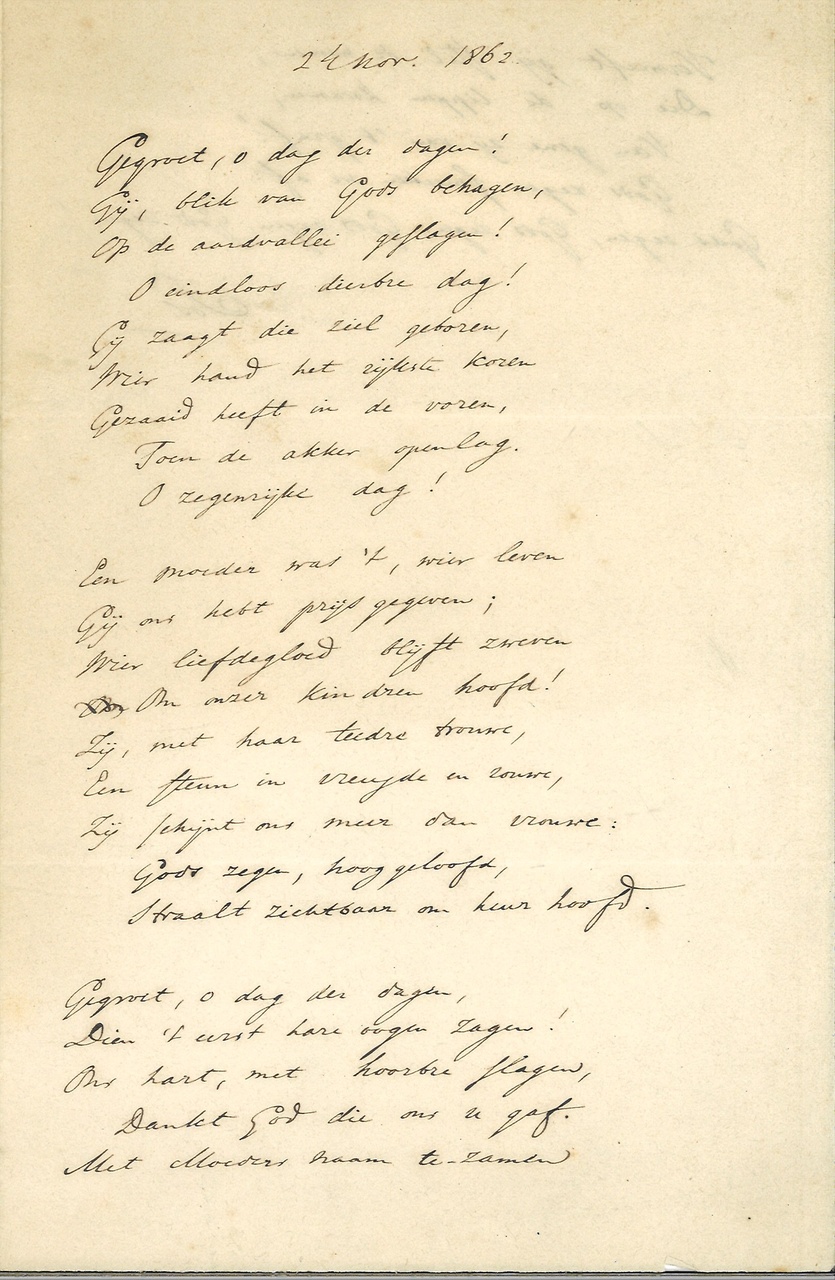 24 Nov. 1862.
Gegroet, o dag der dagen!
Gij, blik van Gods behagen,
Op de aardvallei geslagen!
O eindloos dierbre dag!
Gij zaagt die ziel geboren,
Wier hand het rijkste koren
Gezaaid heeft in de voren,
Toen de akker openlag.
O zegenrijke dag!
Een moeder was 't, wier leven
Gij ons hebt prijs gegeven;
Wier liefdegloed blijft zweven
Om onzer kindren hoofd!
Zij, met haar teedre trouwe,
Een steun in vreugde en rouwe,
Zij schijnt ons meer dan vrouwe:
Gods zegen, hoog geloofd,
Straalt zichtbaar om heur hoofd.
Gegroet, o dag der dagen,
Dien 't eerst hare oogen zagen!
Ons hart, met hoorbre slagen,
Dankt God die ons u gaf.
Met Moeders naam te-zamen